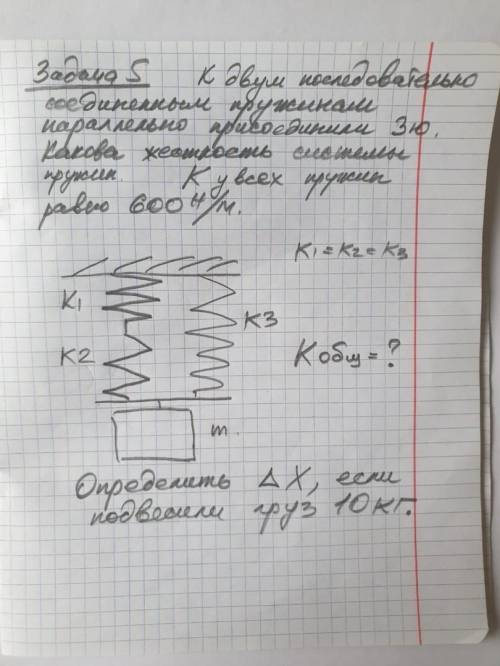 Задача 5 К двум последовательно
соединенным пружинам
параллельно присоединили 3ю.
Какова жесткость системы
пружин. К у всех пружин
равно 600 Н/м.
К1 = К2 = К3
К1
К3
К2
Кобщ = ?
m.
Определить Δ Х, если
подвесили груз 10 кг.